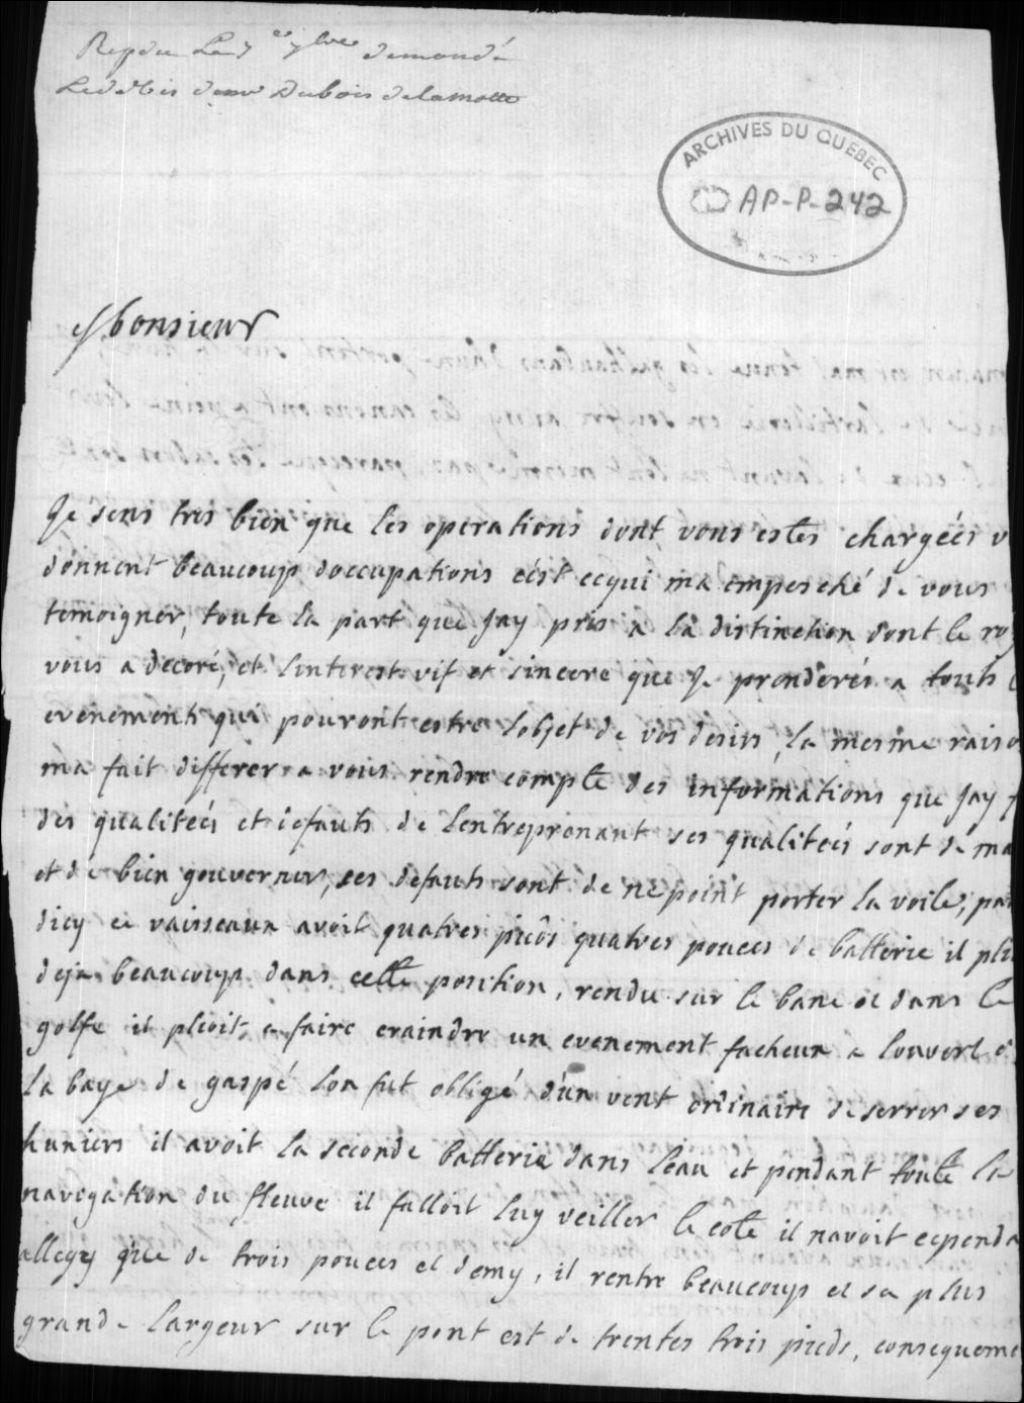 Repdu Le 7 demandé
Dubois delamotte
ARCHIVES DU QUEBEC
AP-P-242
Monsieur
Je sens tres bien que les operations dont vous estes chargéés v
donnent beaucoup doccupations cést cequi ma empesché de vous
temoigner, toute la part que Jay pris a la distinction dont le roy
vous a decoré, et linterest vif et sincere que Je prenderés a touts
evenements qui pouront estre lobjet de vos desirs, la mesme raiso
ma fait differer a vous rendre compte des informations que Jay
des qualiteés et defauts de Lentreprenant ses qualiteés sont de ma
et de bien gouverner, ses defauts sont de ne point porter la voile, par
dicy ce vaisseaux avoit quatres pieds quatres pouces de batterie il pli
deja beaucoup dans cette position, rendu sur le banc et dans le
golfe il plioit, a faire craindre un evenement facheux a louvert d
la baye de gaspé lon fut obligé dun vent ordinaire de serrer ses
huniers il avoit la seconde batterie dans leau et pendant toute la
navegation du fleuve il falloit luy veiller le coté il navoit cependa
allegy que de trois pouces et demy, il rentre beaucoup et sa plus
grande largeur sur le pont est de trentes trois pieds, consequeme